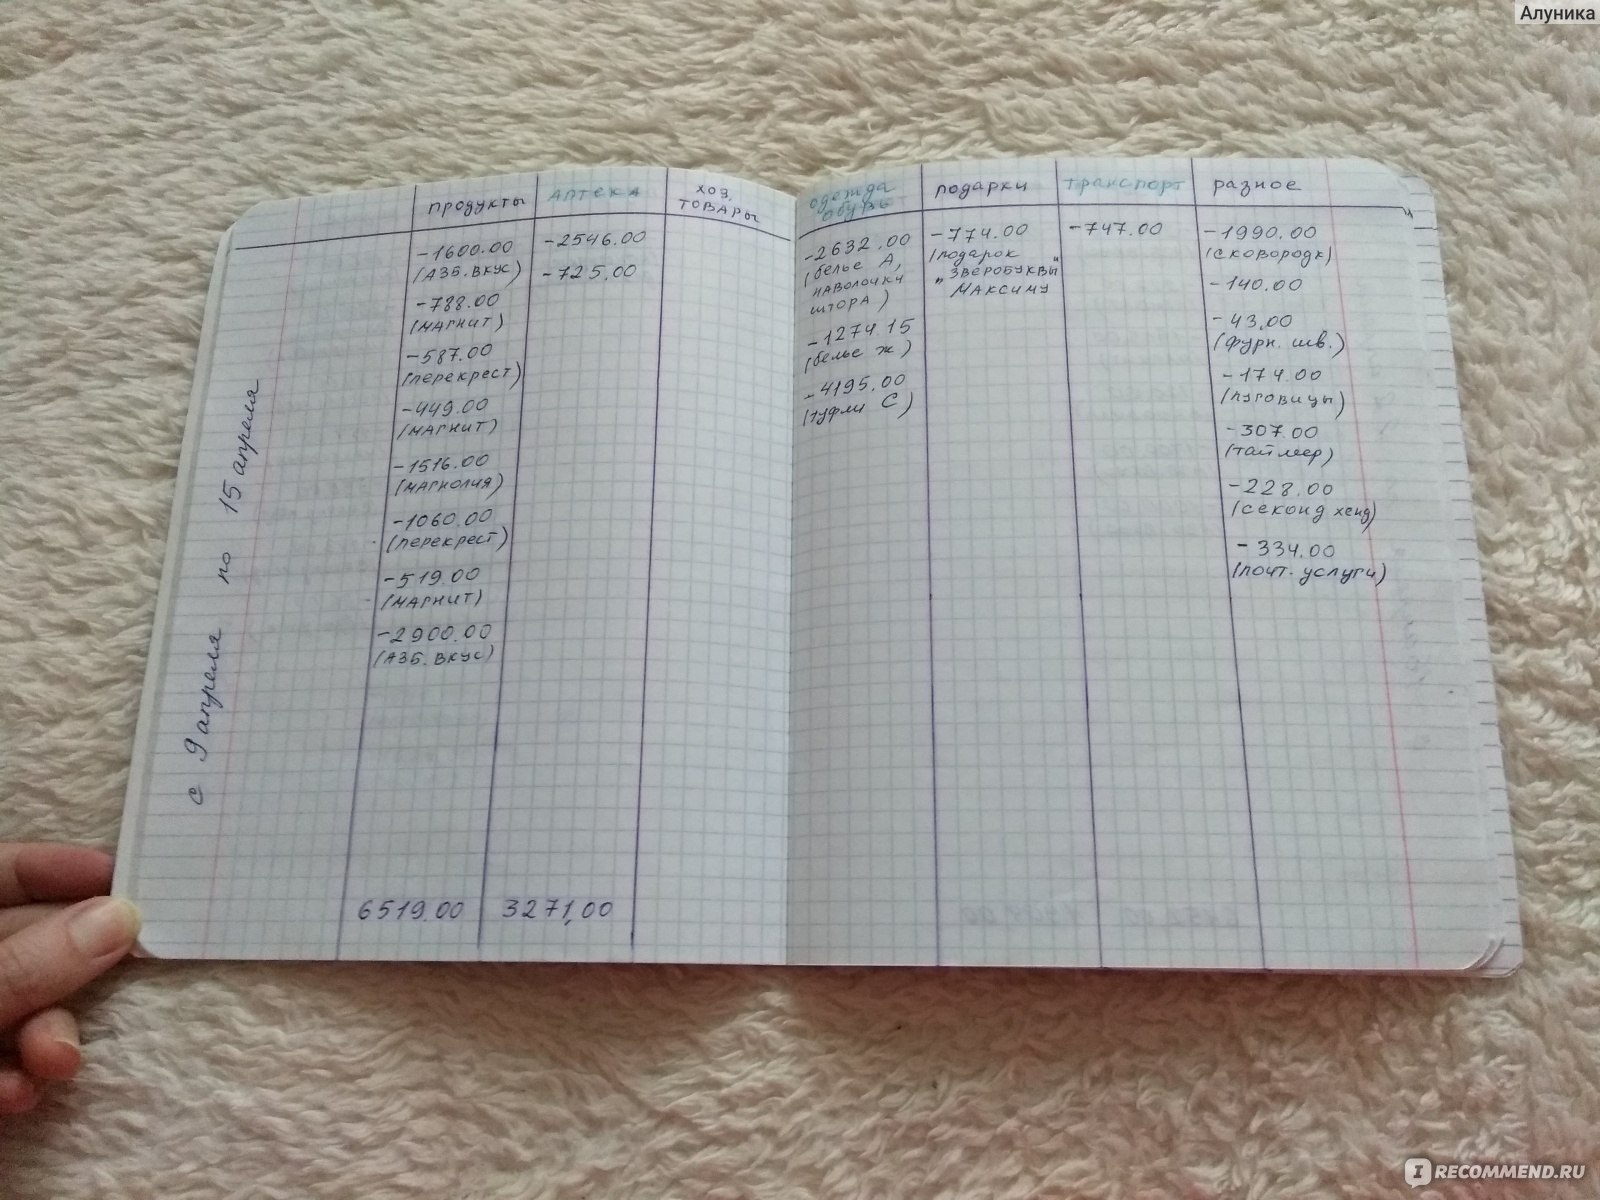 Алуника
с 9 апреля по 15 апреля
продукты
-1600.00
(АЗБ. ВКУС)
-788.00
(МАГНИТ)
-587.00
(перекрест)
-449.00
(МАГНИТ)
-1516.00
(МАГНОЛИЯ)
-1060.00
(перекрест)
-519.00
(МАГНИТ)
-2900.00
(АЗБ. ВКУС)
6519.00
АПТЕКА
-2546.00
-725,00
3271,00
хоз.
ТОВАРЫ
одежда
обувь
-2632.00
(белье А,
наволочки
штора)
-1274.15
(белье ж)
-4195.00
(туфли С)
подарки
-774.00
(подарок
"ЗВЕРОБУКВЫ"
Максиму
транспорт
-747.00
разное
-1990.00
(сковородк)
-140.00
-43,00
(фурн. шв.)
-174.00
(пуговицы)
-307.00
(таймер)
-228.00
(секонд хенд)
-334,00
(почт. услуги)
IRECOMMEND.RU